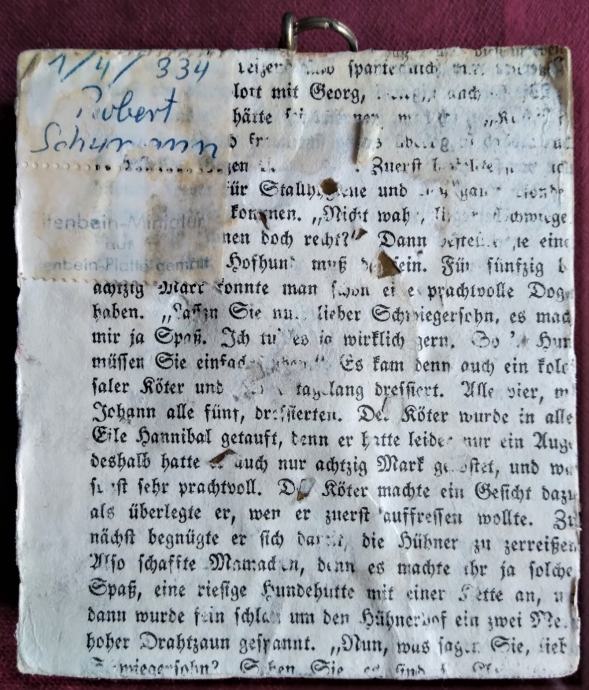 1/4/334
Robert
Schumann
tenbein-Miniatur
auf
enbein-Platte gemalt
spart
lott mit Georg, auch
härte
Zuerst
für Stallhygiene und
kommen. „Nicht wahr, Schwiege
nen doch recht?“ Dann eine
Hofhund muß sein. Für fünfzig b
achtzig Mark konnte man schon eine prachtvolle Dog
haben. „Lassen Sie nur, lieber Schwiegersohn, es mac
mir ja Spaß. Ich tu' es ja wirklich gern. So 'n Hun
müssen Sie einfach Es kam denn auch ein kolos
saler Köter und tagelang dressiert. Alle vier, m
Johann alle fünf, dressierten. Der Köter wurde in alle
Eile Hannibal getauft, denn er hatte leider nur ein Auge
deshalb hatte er auch nur achtzig Mark gekostet, und wa
sonst sehr prachtvoll. Der Köter machte ein Gesicht dazu
als überlegte er, wen er zuerst auffressen wollte. Zu
nächst begnügte er sich damit, die Hühner zu zerreißen
Also schaffte Mamachen, denn es machte ihr ja solche
Spaß, eine riesige Hundehütte mit einer Kette an, u
dann wurde fein schlau um den Hühnerhof ein zwei Me
hoher Drahtzaun gespannt. „Nun, was sagen Sie, lieb
Schwiegersohn? Sehen Sie, es sind